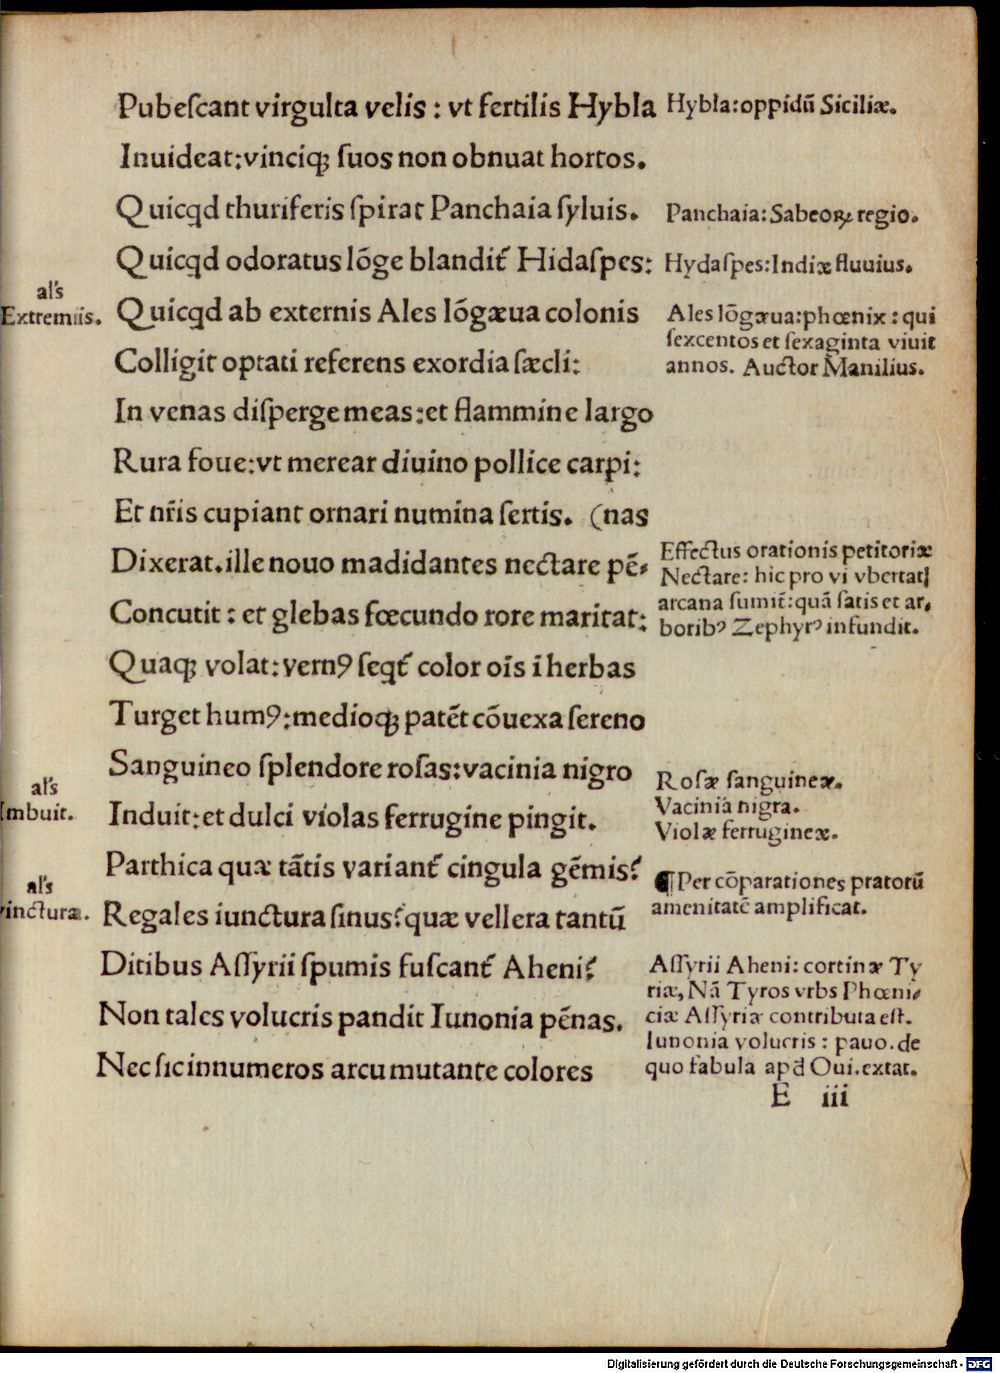 Pubeſcant virgulta velis : vt fertilis Hybla
Inuideat:vinciꝗꝫ ſuos non obnuat hortos.
Quicqd thuriferis ſpirat Panchaia ſyluis.
Quicqd odoratus lōge blandit᷑ Hidaſpes:
Quicqd ab externis Ales lōgæua colonis
Colligit optati referens exordia ſæcli:
In venas diſperge meas:et flammine largo
Rura foue:vt merear diuino pollice carpi:
Et nr̄is cupiant ornari numina ſertis. (nas
Dixerat.ille nouo madidantes nectare pē-
Concutit : et glebas fœcundo rore maritat:
Quaqꝫ volat:vernꝰ ſeqt᷑ color oīs ī herbas
Turget humꝰ:medioqꝫ patēt cōuexa ſereno
Sanguineo ſplendore roſas:vacinia nigro
Induit:et dulci violas ferrugine pingit.
Parthica quæ tātis variant᷑ cingula gēmis?
Regales iunctura ſinus?quæ vellera tantū
Ditibus Aſſyrii ſpumis fuſcant᷑ Aheni?
Non tales volucris pandit Iunonia pēnas.
Nec ſic innumeros arcu mutante colores
al's
Extremis.
al's
Imbuit.
al's
vincturæ.
Hybla:oppidū Siciliæ.
Panchaia:Sabeoꝝ regio.
Hydaſpes:Indiæ fluuius.
Ales lōgæua:phœnix : qui
ſexcentos et ſexaginta viuit
annos. Auctor Manilius.
Effectus orationis petitoriæ
Nectare: hic pro vi vbertatꝭ
arcana ſumit᷑:quā ſatis et ar-
boribꝰ Zephyrꝰ infundit.
Roſæ ſanguineæ.
Vacinia nigra.
Violæ ferrugineæ.
¶Per cōparationes pratorū
amenitatē amplificat.
Aſſyrii Aheni: cortinæ Ty
riæ, Nā Tyros vrbs Phœni-
ciæ Aſſyriæ contributa eſt.
Iunonia volucris : pauo.de
quo fabula apd̄ Oui.extat.
E iii
Digitalisierung gefördert durch die Deutsche Forschungsgemeinschaft - DFG